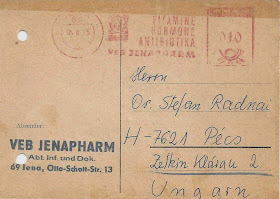 VITAMINE
HORMONE
ANTIBIOTIKA
VEB JENAPHARM
010
Herrn
Dr. Stefan Radnai
H-7621 Pécs
Zetkin Klára u 2
Ungarn
Absender:
VEB JENAPHARM
Abt. Inf. und Dok.
69 Jena, Otto-Schott-Str. 13